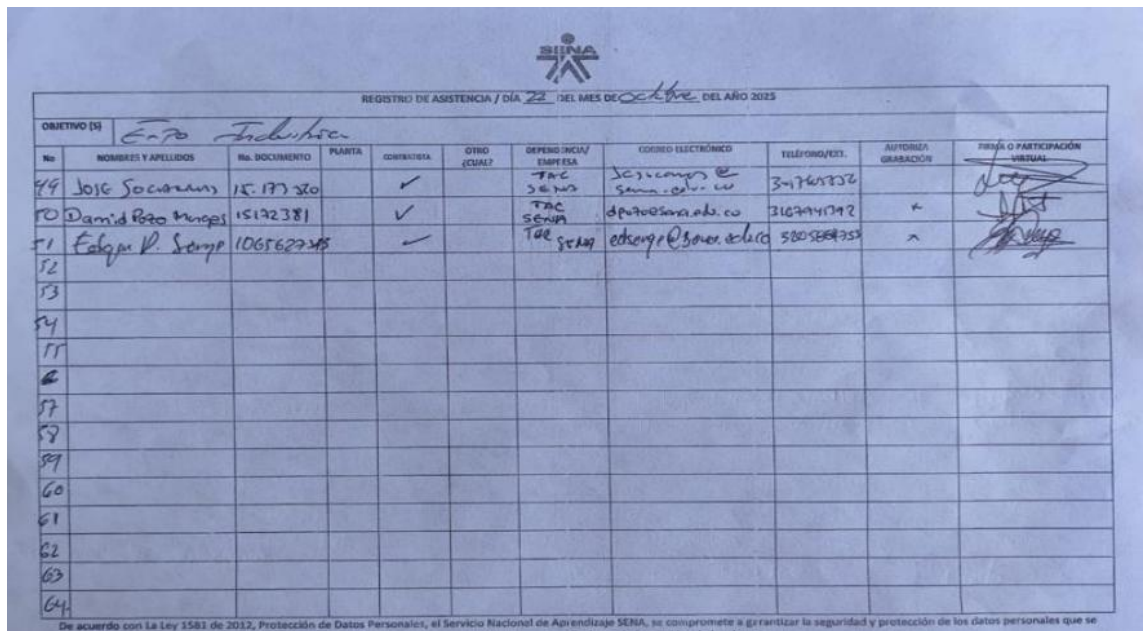 SENA
REGISTRO DE ASISTENCIA / DÍA 22 DEL MES DE Octubre DEL AÑO 2025
OBJETIVO (S) Expo Industria
No NOMBRES Y APELLIDOS No. DOCUMENTO PLANTA CONTRATISTA OTRO ¿CUAL? DEPENDENCIA/ EMPRESA CORREO ELECTRÓNICO TELÉFONO/EXT. AUTORIZA GRABACIÓN FIRMA O PARTICIPACIÓN VIRTUAL
49 Jose Socarras ✓ TAC SENA
50 15172381 ✓ TAC SENA dpozo@sena.edu.co
51 Edgar ✓ SENA
52
53
54
55
57
58
59
60
61
62
63
64.
De acuerdo con La Ley 1581 de 2012, Protección de Datos Personales, el Servicio Nacional de Aprendizaje SENA, se compromete a garantizar la seguridad y protección de los datos personales que se